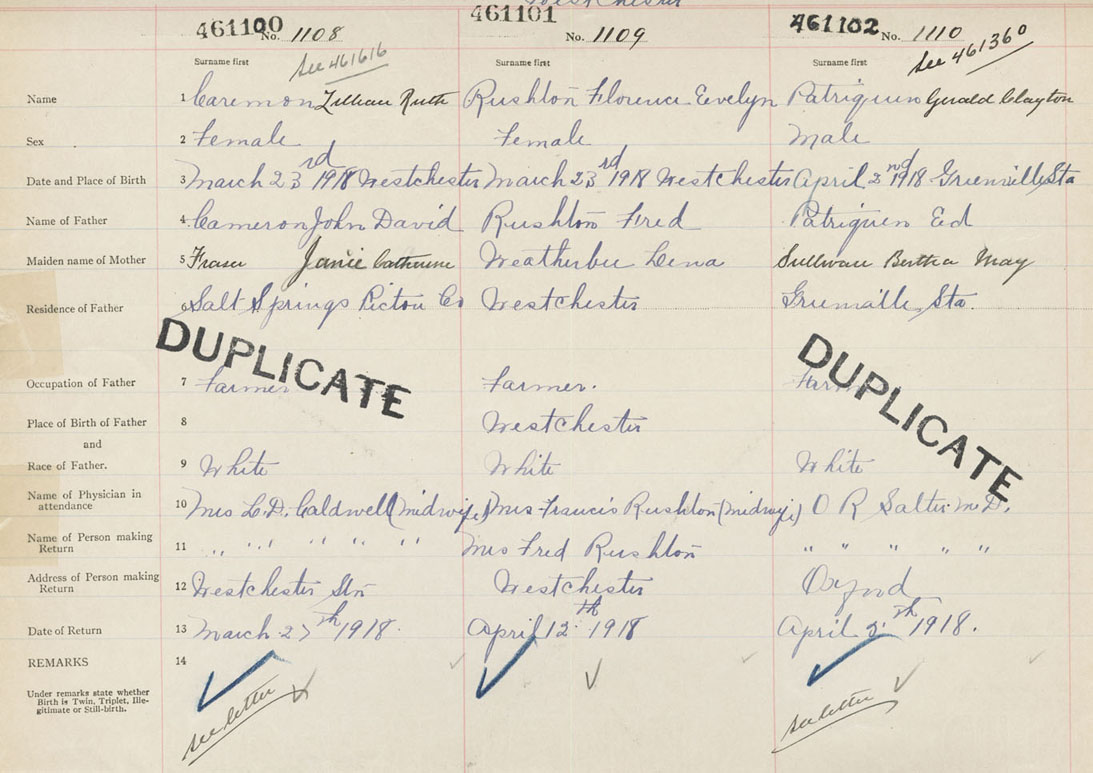 Westchester
461100 No. 1108 461101 No. 1109 461102 No. 1110
See 461616 See 461360
Surname first Surname first Surname first
Name 1 Caremon Lillian Ruth Rushton Florence Eevelyn Patriquen Gerald Clayton
Sex 2 Female Female Male
Date and Place of Birth 3 March 23rd 1918 Westchester March 23rd 1918 Westchester April 2nd 1918 Greenville Sta
Name of Father 4 Cameron John David Rushton Fred Patriquen Ed
Maiden name of Mother 5 Fraser Janie Catherine Weatherbee Lena Sullivan Bertha May
Residence of Father 6 Salt Springs Pictou Co Westchester Greenville Sta.
DUPLICATE DUPLICATE
Occupation of Father 7 Farmer Farmer. Farm
Place of Birth of Father 8 Westchester
and
Race of Father. 9 White White White
Name of Physician in
attendance 10 Mrs L.D. Caldwell (midwife) Mrs Francis Rushton (midwife) O R Salter M.D.
Name of Person making
Return 11 " " " " " Mrs Fred Rushton " " " " "
Address of Person making
Return 12 Westchester Stn Westchester Oxford
Date of Return 13 March 27th 1918. April 12th 1918 April 1918.
REMARKS 14
Under remarks state whether
Birth is Twin, Triplet, Ille-
gitimate or Still-birth.
see letter see letter